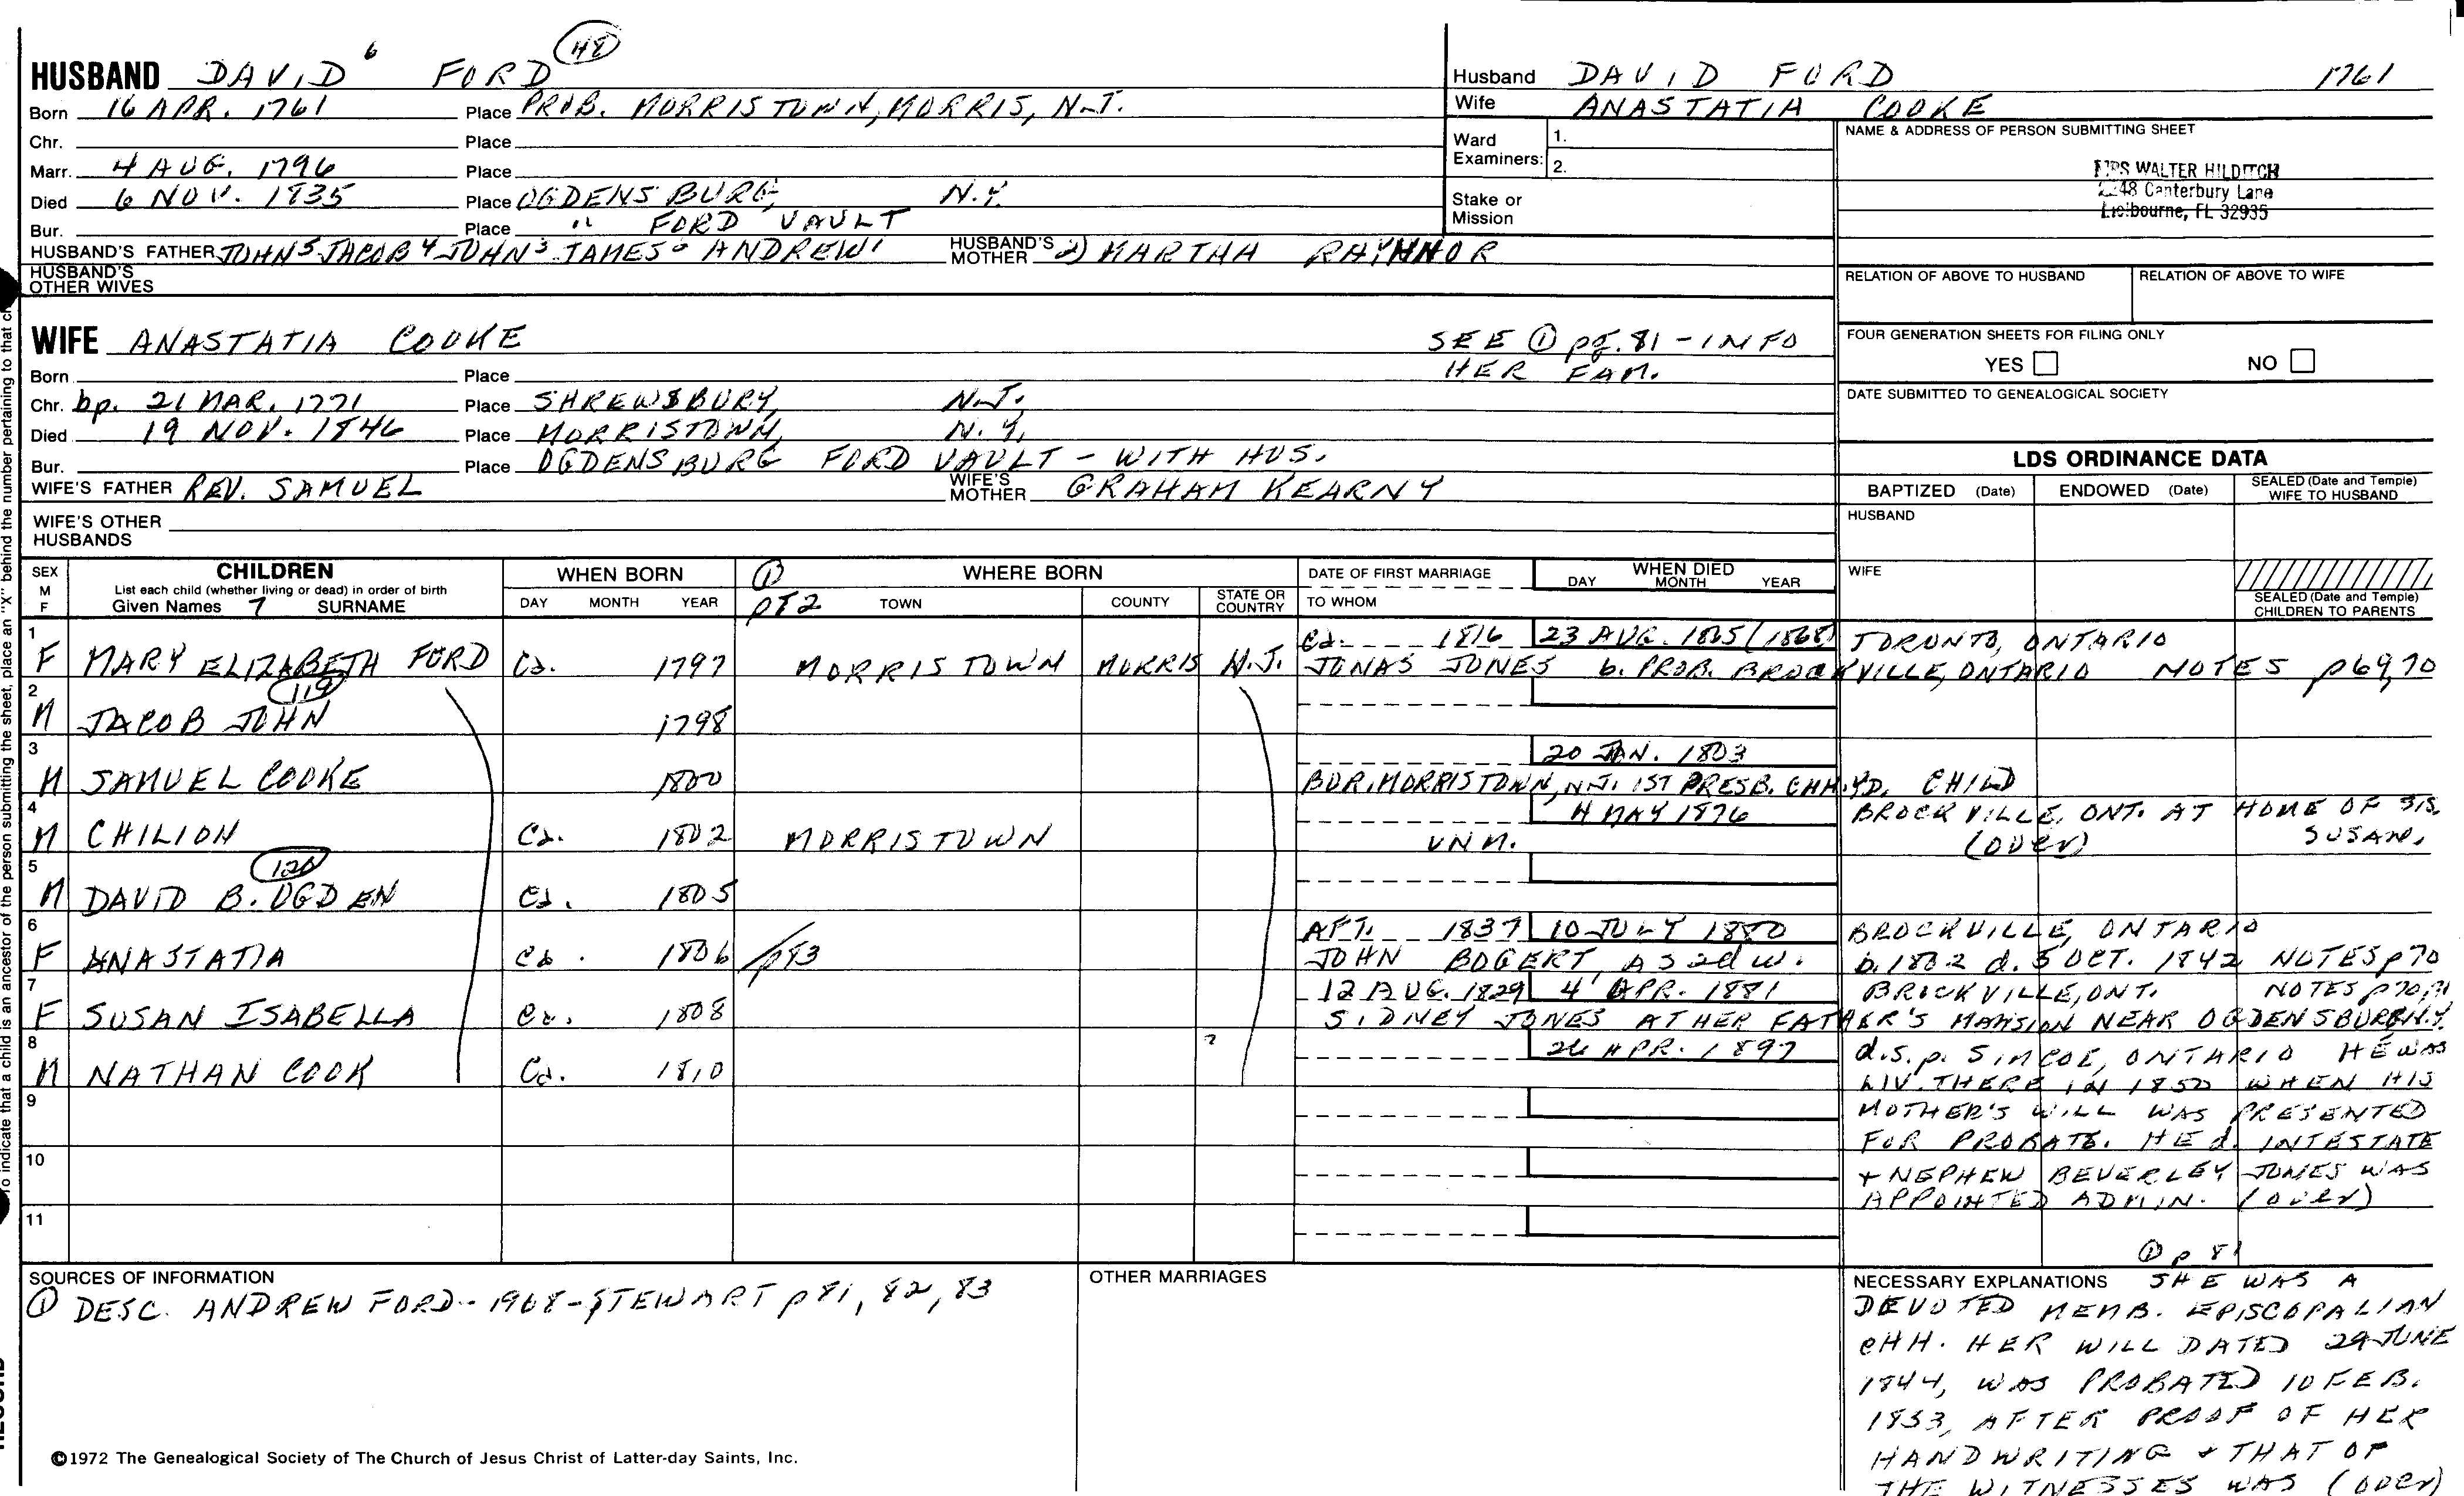 HUSBAND DAVID 6 FORD (48)
Born 16 APR. 1761 Place PROB. MORRISTOWN, MORRIS, N.J.
Chr. Place
Marr. 4 AUG. 1796 Place
Died 6 NOV. 1835 Place OGDENSBURG, N.Y.
Bur. Place " FORD VAULT
HUSBAND'S FATHER JOHN5 JACOB4 JOHN3 JAMES2 ANDREW1 HUSBAND'S MOTHER 2) MARTHA RAYNNOR
HUSBAND'S OTHER WIVES
Husband DAVID FORD 1761
Wife ANASTATIA COOKE
Ward Examiners: 1.
2.
Stake or Mission
NAME & ADDRESS OF PERSON SUBMITTING SHEET
MRS WALTER HILDITCH
2248 Canterbury Lane
Melbourne, FL 32935
RELATION OF ABOVE TO HUSBAND RELATION OF ABOVE TO WIFE
FOUR GENERATION SHEETS FOR FILING ONLY
YES NO
DATE SUBMITTED TO GENEALOGICAL SOCIETY
WIFE ANASTATIA COOKE SEE ① pg. 81 - INFO
HER FAM.
Born Place
Chr. bp. 21 MAR. 1771 Place SHREWSBURY, N.J.
Died 19 NOV. 1846 Place MORRISTOWN, N.Y.
Bur. Place OGDENSBURG FORD VAULT - WITH HUS.
WIFE'S FATHER REV. SAMUEL WIFE'S MOTHER GRAHAM KEARNY
WIFE'S OTHER HUSBANDS
LDS ORDINANCE DATA
BAPTIZED (Date) ENDOWED (Date) SEALED (Date and Temple) WIFE TO HUSBAND
HUSBAND
WIFE
SEALED (Date and Temple) CHILDREN TO PARENTS
SEX M F CHILDREN
List each child (whether living or dead) in order of birth
Given Names 7 SURNAME
WHEN BORN
DAY MONTH YEAR
① p82 WHERE BORN
TOWN COUNTY STATE OR COUNTRY
DATE OF FIRST MARRIAGE
TO WHOM
WHEN DIED
DAY MONTH YEAR
1 Ca. 1816 23 AUG. 1865 (1868) TORONTO, ONTARIO
F MARY ELIZABETH FORD Ca. 1797 MORRISTOWN MORRIS N.J. JONAS JONES b. PROB. BROCKVILLE, ONTARIO NOTES p69,70
2 (119)
M JACOB JOHN 1798
3 20 JAN. 1803
M SAMUEL COOKE 1800 BUR. MORRISTOWN, N.J. 1ST PRESB. CHH.YD. CHILD
4 4 MAY 1876 BROCKVILLE, ONT. AT HOME OF SIS.
M CHILION Ca. 1802 MORRISTOWN UNM. (over) SUSAN.
5 (120)
M DAVID B. OGDEN Ca. 1805
6 AFT. 1837 10 JULY 1880 BROCKVILLE, ONTARIO
F ANASTATIA Ca. 1806 p83 JOHN BOGERT, AS 2d W. b. 1802 d. 5 OCT. 1842 NOTES p70
7 12 AUG. 1829 4 APR. 1881 BROCKVILLE, ONT. NOTES p70,71
F SUSAN ISABELLA Ca. 1808 SIDNEY JONES AT HER FATHER'S MANSION NEAR OGDENSBURG N.Y.
8 ? 26 APR. 1897 d.s.p. SIMCOE, ONTARIO HE WAS
M NATHAN COOK Ca. 1810 LIV. THERE IN 1850 WHEN HIS
9 MOTHER'S WILL WAS PRESENTED
FOR PROBATE. HE d. INTESTATE
10 + NEPHEW BEVERLEY JONES WAS
APPOINTED ADMIN. (over)
11
① p 81
SOURCES OF INFORMATION
① DESC. ANDREW FORD - 1968 - STEWART p 81, 82, 83
OTHER MARRIAGES
NECESSARY EXPLANATIONS SHE WAS A
DEVOTED MEMB. EPISCOPALIAN
CHH. HER WILL DATED 29 JUNE
1844, WAS PROBATED 10 FEB.
1853, AFTER PROOF OF HER
HANDWRITING + THAT OF
THE WITNESSES WAS (over)
©1972 The Genealogical Society of The Church of Jesus Christ of Latter-day Saints, Inc.
To indicate that a child is an ancestor of the person submitting the sheet, place an "X" behind the number pertaining to that